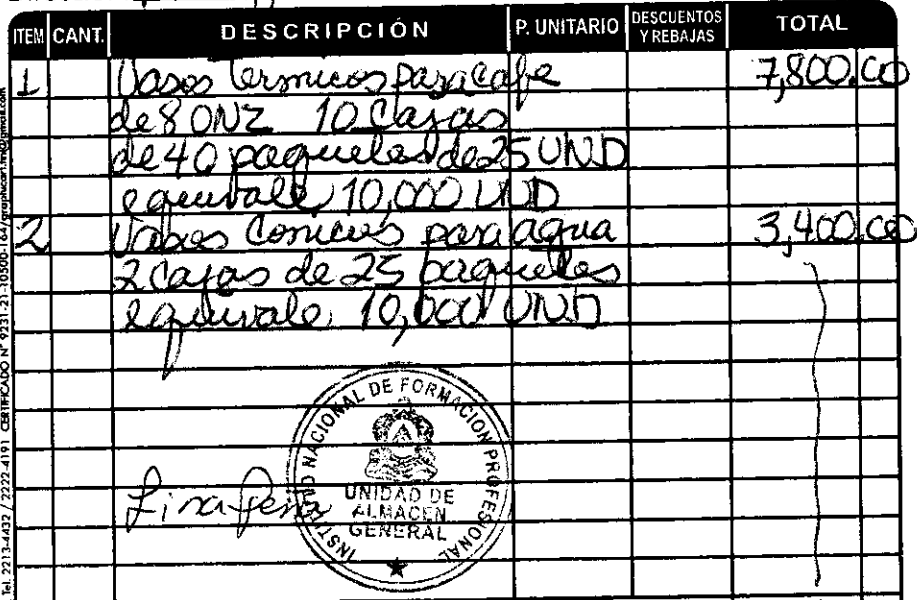 ITEM CANT. DESCRIPCIÓN P. UNITARIO DESCUENTOS Y REBAJAS TOTAL
1 Vasos termicos para cafe 7,800.00
de 8 ONZ 10 Cajas
de 40 paquetes de 25 UND
equivale 10,000 UND
2 Vasos Conicos para agua 3,400.00
2 Cajas de 25 paquetes
equivale 10,000 UND
INSTITUTO NACIONAL DE FORMACION PROFESIONAL
UNIDAD DE
ALMACEN
GENERAL
Tel. 2213-4432 / 2222-4191 CERTIFICADO N° 9231-21-10500-164/